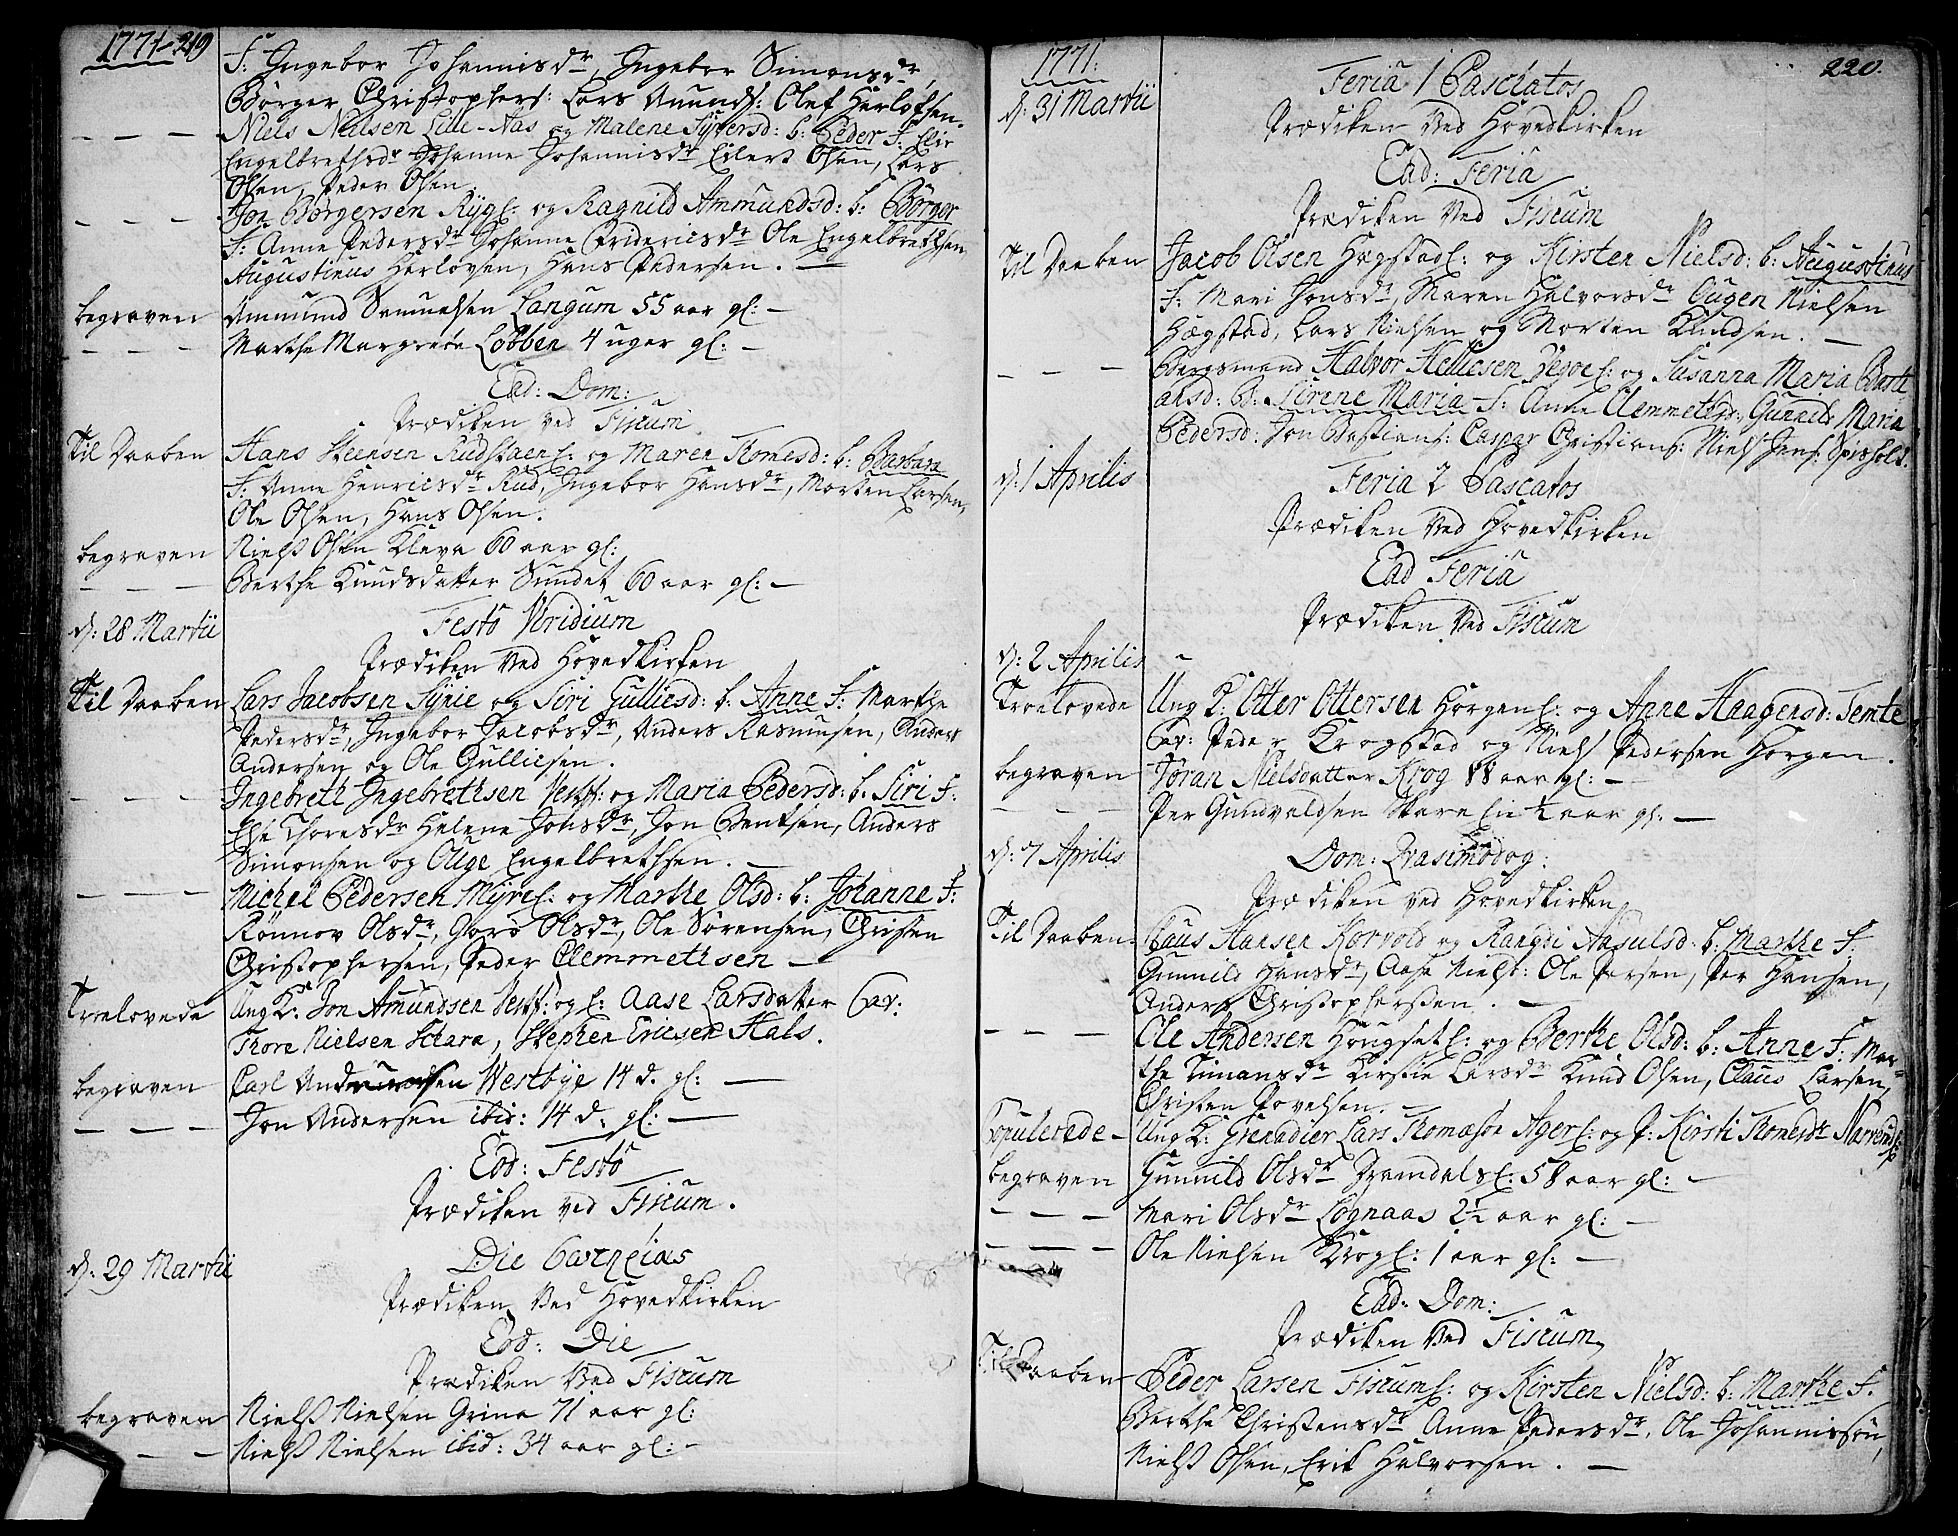 1771 219
F: Ingebor Johannisdr, Ingebor Simonsdr,
Børger Christophers: Lars Amunds: Olef Herlofsen.
— — — Niels Nielsen Lille-Aas og Malene Syversd: b: Peder F: Elie
Engelbrethsdr Johanne Johannisdr Eilert Olsen, Lars
Olsen, Peder Olsen.
— — — Jon Børgersen Ryg: og Ragnild Ammundsd: b: Børger
F: Anne Pedersdr Johanne Fridericsdr Ole Engelbrethsen
Augustinus Herlovsen, Hans Pedersen. —
begraven Ammund Samuelsen Langum 55 aar gl: —
— — — Marthe Margrete Løbben 4 uger gl: —
Ead: Dom:
Prædiken ved Fiscum
Til Daaben Hans Steensen Rudstaen: og Maren Tomesd: b: Barbara
F: Anne Henricsdr Rud, Ingebor Hansdr, Morten Larsen,
Ole Olsen, Hans Olsen.
begraven Niels Olsen Kleva 60 aar gl:
— — — Berthe Knudsdatter Sundet 60 aar gl: —
d: 28 Martii Festo Viridium
Prædiken ved Hovedkirken
Til Daaben Lars Jacobsen Syrie og Siri Gulliesd: b: Anne F: Marthe
Pedersdr, Ingebor Jacobsdr, Anders Rasmusen, Anders
Andersen og Ole Gulliesen.
— — — Ingebreth Ingebrethsen Vestf: og Maria Pedersd: b: Siri F:
Else Thoresdr Helene Jonsdr, Jon Bentsen, Anders
Simonsen og Olige Engelbrethsen. —
— — — Michel Pedersen Myre: og Marthe Olsd: b: Johanne F:
Rønnov Olsdr, Gorø Olsdr, Ole Sørensen, Christen
Christophersen, Peder Clemmethsen —
Troelovede Ung K: Jon Amundsen Vestf: og : Aase Larsdatter Cav:
Thore Nielsen Schara, Stephen Ericsen Hals.
begraven Carl Andersen Westbye 14 d. gl: —
— — — Jon Andersen ibid: 14 d. gl: —
Eod: Festo
Prædiken ved Fiscum.
d: 29 Martii Die Parascues
Prædiken ved Hovedkirken
Eod: Die
Prædiken ved Fiscum
begraven Niels Nielsen Grina 71 aar gl:
— — Niels Nielsen ibid: 34 aar gl: —
1771. 220.
d: 31 Martii Feria 1 Paschatos
Prædiken ved Hovedkirken
Ead: Feria
Prædiken ved Fiscum
Til Daaben Jacob Olsen Hægstad: og Kirsten Nielsd: b: Augustinus
F: Mari Jonsdr, Maren Halvorsdr Ougen Nielsen
Hægstad, Lars Nielsen og Morten Knudsen. —
— — — Bergsmand Halvor Helliesen og Susanna Maria Basti
ansd: b: Sirene Maria F: Anne Clemmetsd: Gunnild Maria
Pedersd: Jon Bastians: Caspar Christians: Niels Jens:
d: 1 Aprilis Feria 2 Pascatos
Prædiken ved Hovedkirken
Ead Feria
Prædiken ved Fiscum
d: 2 Aprilis
Troelovede Ung K: Otter Ottersen Horgen: og Anne Haagensd: Temte
Cav: Peder Krogstad og Niels Pedersen Horgen.
begraven Joran Nielsdatter Krog aar gl: —
— — Per Gundvaldsen Skare ½ aar gl: —
d: 7 Aprilis Dom: Qvasimodog:
Prædiken ved Hovedkirken
Til Daaben Claus Hansen Korvold og Rangdi Aasulsd: b: Marthe F:
Gunnild Hansdr, Aase Niels: Ole Persen, Per Hansen,
Anders Christophersen. —
— — — Ole Andersen Hougset: og Berthe Olsd: b: Anne F: Mar-
the Timansdr Kirstie Larsdr Knud Olsen, Claus Larsen,
Christen Povelsen. —
Copulerede — Ung K: Grenadier Lars Thomæsøn Ager: og P: Kirsti Thomesdr
begraven Gunnild Olsdr Dramdals: 58 aar gl: —
— — — Mari Olsdr Løgnaas 2½ aar gl: —
— — — Ole Nielsen Krog: 1 aar gl: —
Ead: Dom:
Prædiken ved Fiscum
Til Daaben Peder Larsen Fiscum: og Kirsten Nielsd: b: Marthe F:
Berthe Christensdr Anne Pedersdr, Ole Johannissøn,
Niels Olsen, Erik Halvorsen. —